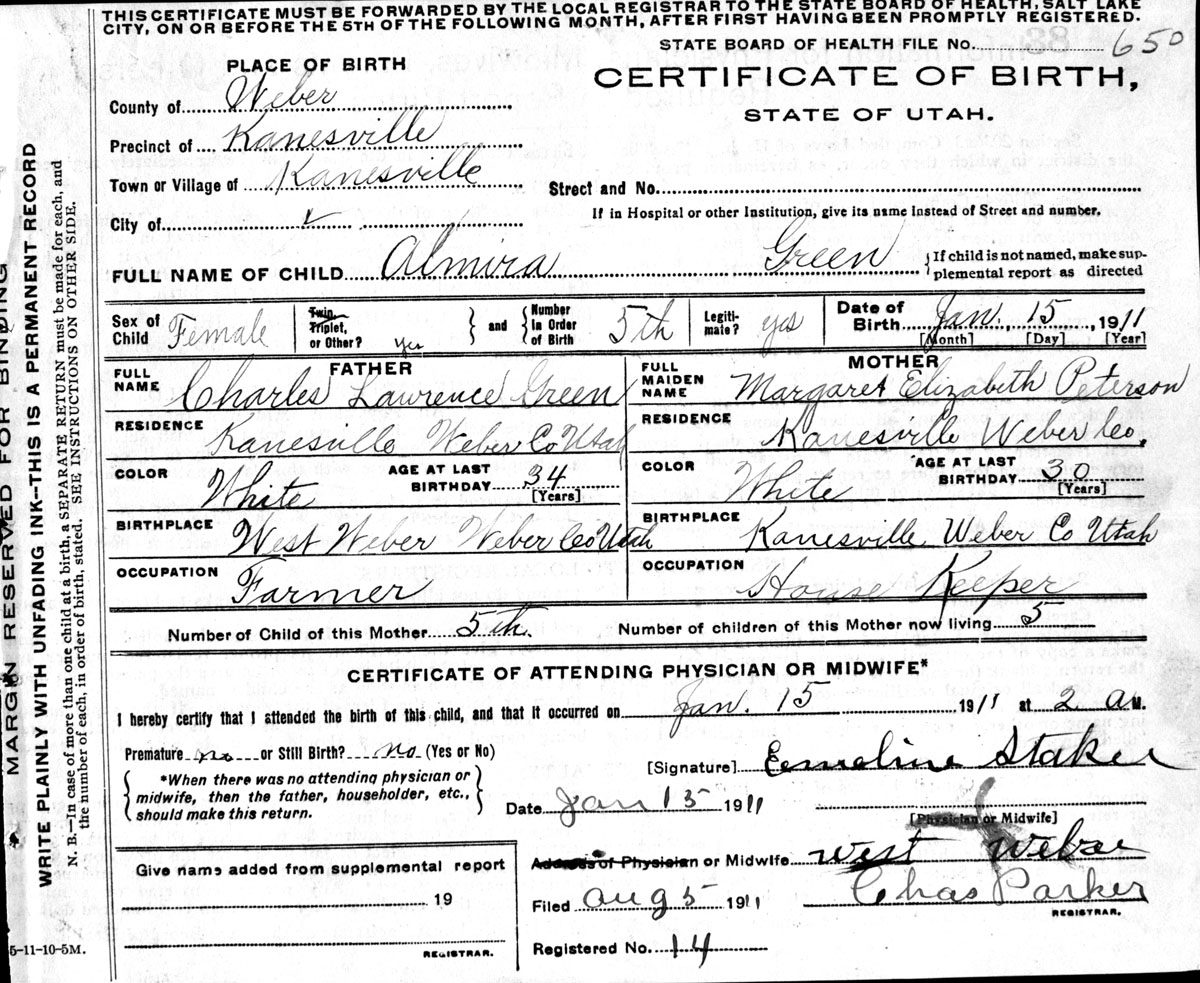 THIS CERTIFICATE MUST BE FORWARDED BY THE LOCAL REGISTRAR TO THE STATE BOARD OF HEALTH, SALT LAKE
CITY, ON OR BEFORE THE 5TH OF THE FOLLOWING MONTH, AFTER FIRST HAVING BEEN PROMPTLY REGISTERED.
STATE BOARD OF HEALTH FILE No. 650
PLACE OF BIRTH
CERTIFICATE OF BIRTH,
STATE OF UTAH.
County of Weber
Precinct of Kanesville
Town or Village of Kanesville
Street and No.
City of
If in Hospital or other Institution, give its name instead of Street and number.
FULL NAME OF CHILD Almira Green {If child is not named, make sup-
plemental report as directed
Sex of Child Female
Twin, Triplet, or Other? yes
and
Number in Order of Birth 5th
Legiti-mate? yes
Date of Birth Jan. 15, 1911
[Month] [Day] [Year]
FATHER
MOTHER
FULL NAME Charles Lawrence Green
FULL MAIDEN NAME Margaret Elizabeth Peterson
RESIDENCE Kanesville Weber Co Utah
RESIDENCE Kanesville Weber Co,
COLOR White AGE AT LAST BIRTHDAY 34 [Years]
COLOR White AGE AT LAST BIRTHDAY 30 [Years]
BIRTHPLACE West Weber Weber Co Utah
BIRTHPLACE Kanesville Weber Co Utah
OCCUPATION Farmer
OCCUPATION House Keeper
Number of Child of this Mother 5th.
Number of children of this Mother now living 5
CERTIFICATE OF ATTENDING PHYSICIAN OR MIDWIFE*
I hereby certify that I attended the birth of this child, and that it occurred on Jan. 15 1911 at 2 a M.
Premature no or Still Birth? no (Yes or No)
[Signature] Emeline Staker
*When there was no attending physician or
midwife, then the father, householder, etc.,
should make this return.
Date Jan 15 1911
[Physician or Midwife]
Address of Physician or Midwife West Weber
Give name added from supplemental report
19
REGISTRAR.
Filed Aug 5 1911 Chas Parker
REGISTRAR.
Registered No. 14
5-11-10-5M.
MARGIN RESERVED FOR BINDING
WRITE PLAINLY WITH UNFADING INK—THIS IS A PERMANENT RECORD
N. B.—In case of more than one child at a birth, a SEPARATE RETURN must be made for each, and
the number of each, in order of birth, stated. SEE INSTRUCTIONS ON OTHER SIDE.